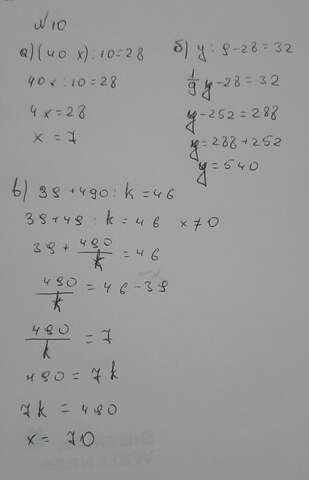 №10
а) (40 x) : 10 = 28
40x : 10 = 28
4x = 28
x = 7
б) y : 9 - 28 = 32
1/9 y - 28 = 32
y - 252 = 288
y = 288 + 252
y = 540
в) 39 + 490 : k = 46
39 + 49 : k = 46 x ≠ 0
39 + 490/k = 46
490/k = 46 - 39
490/k = 7
490 = 7k
7k = 490
x = 70